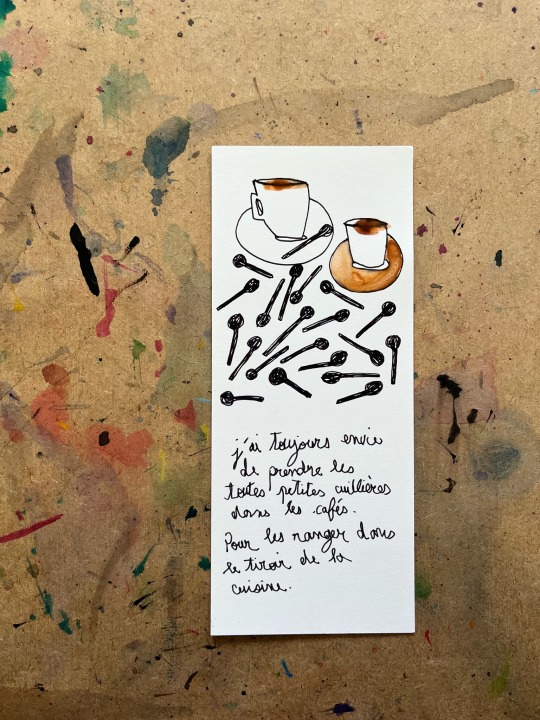 j'ai toujours envie
de prendre les
toutes petites cuillières
dans les cafés.
Pour les ranger dans
le tiroir de la
cuisine.